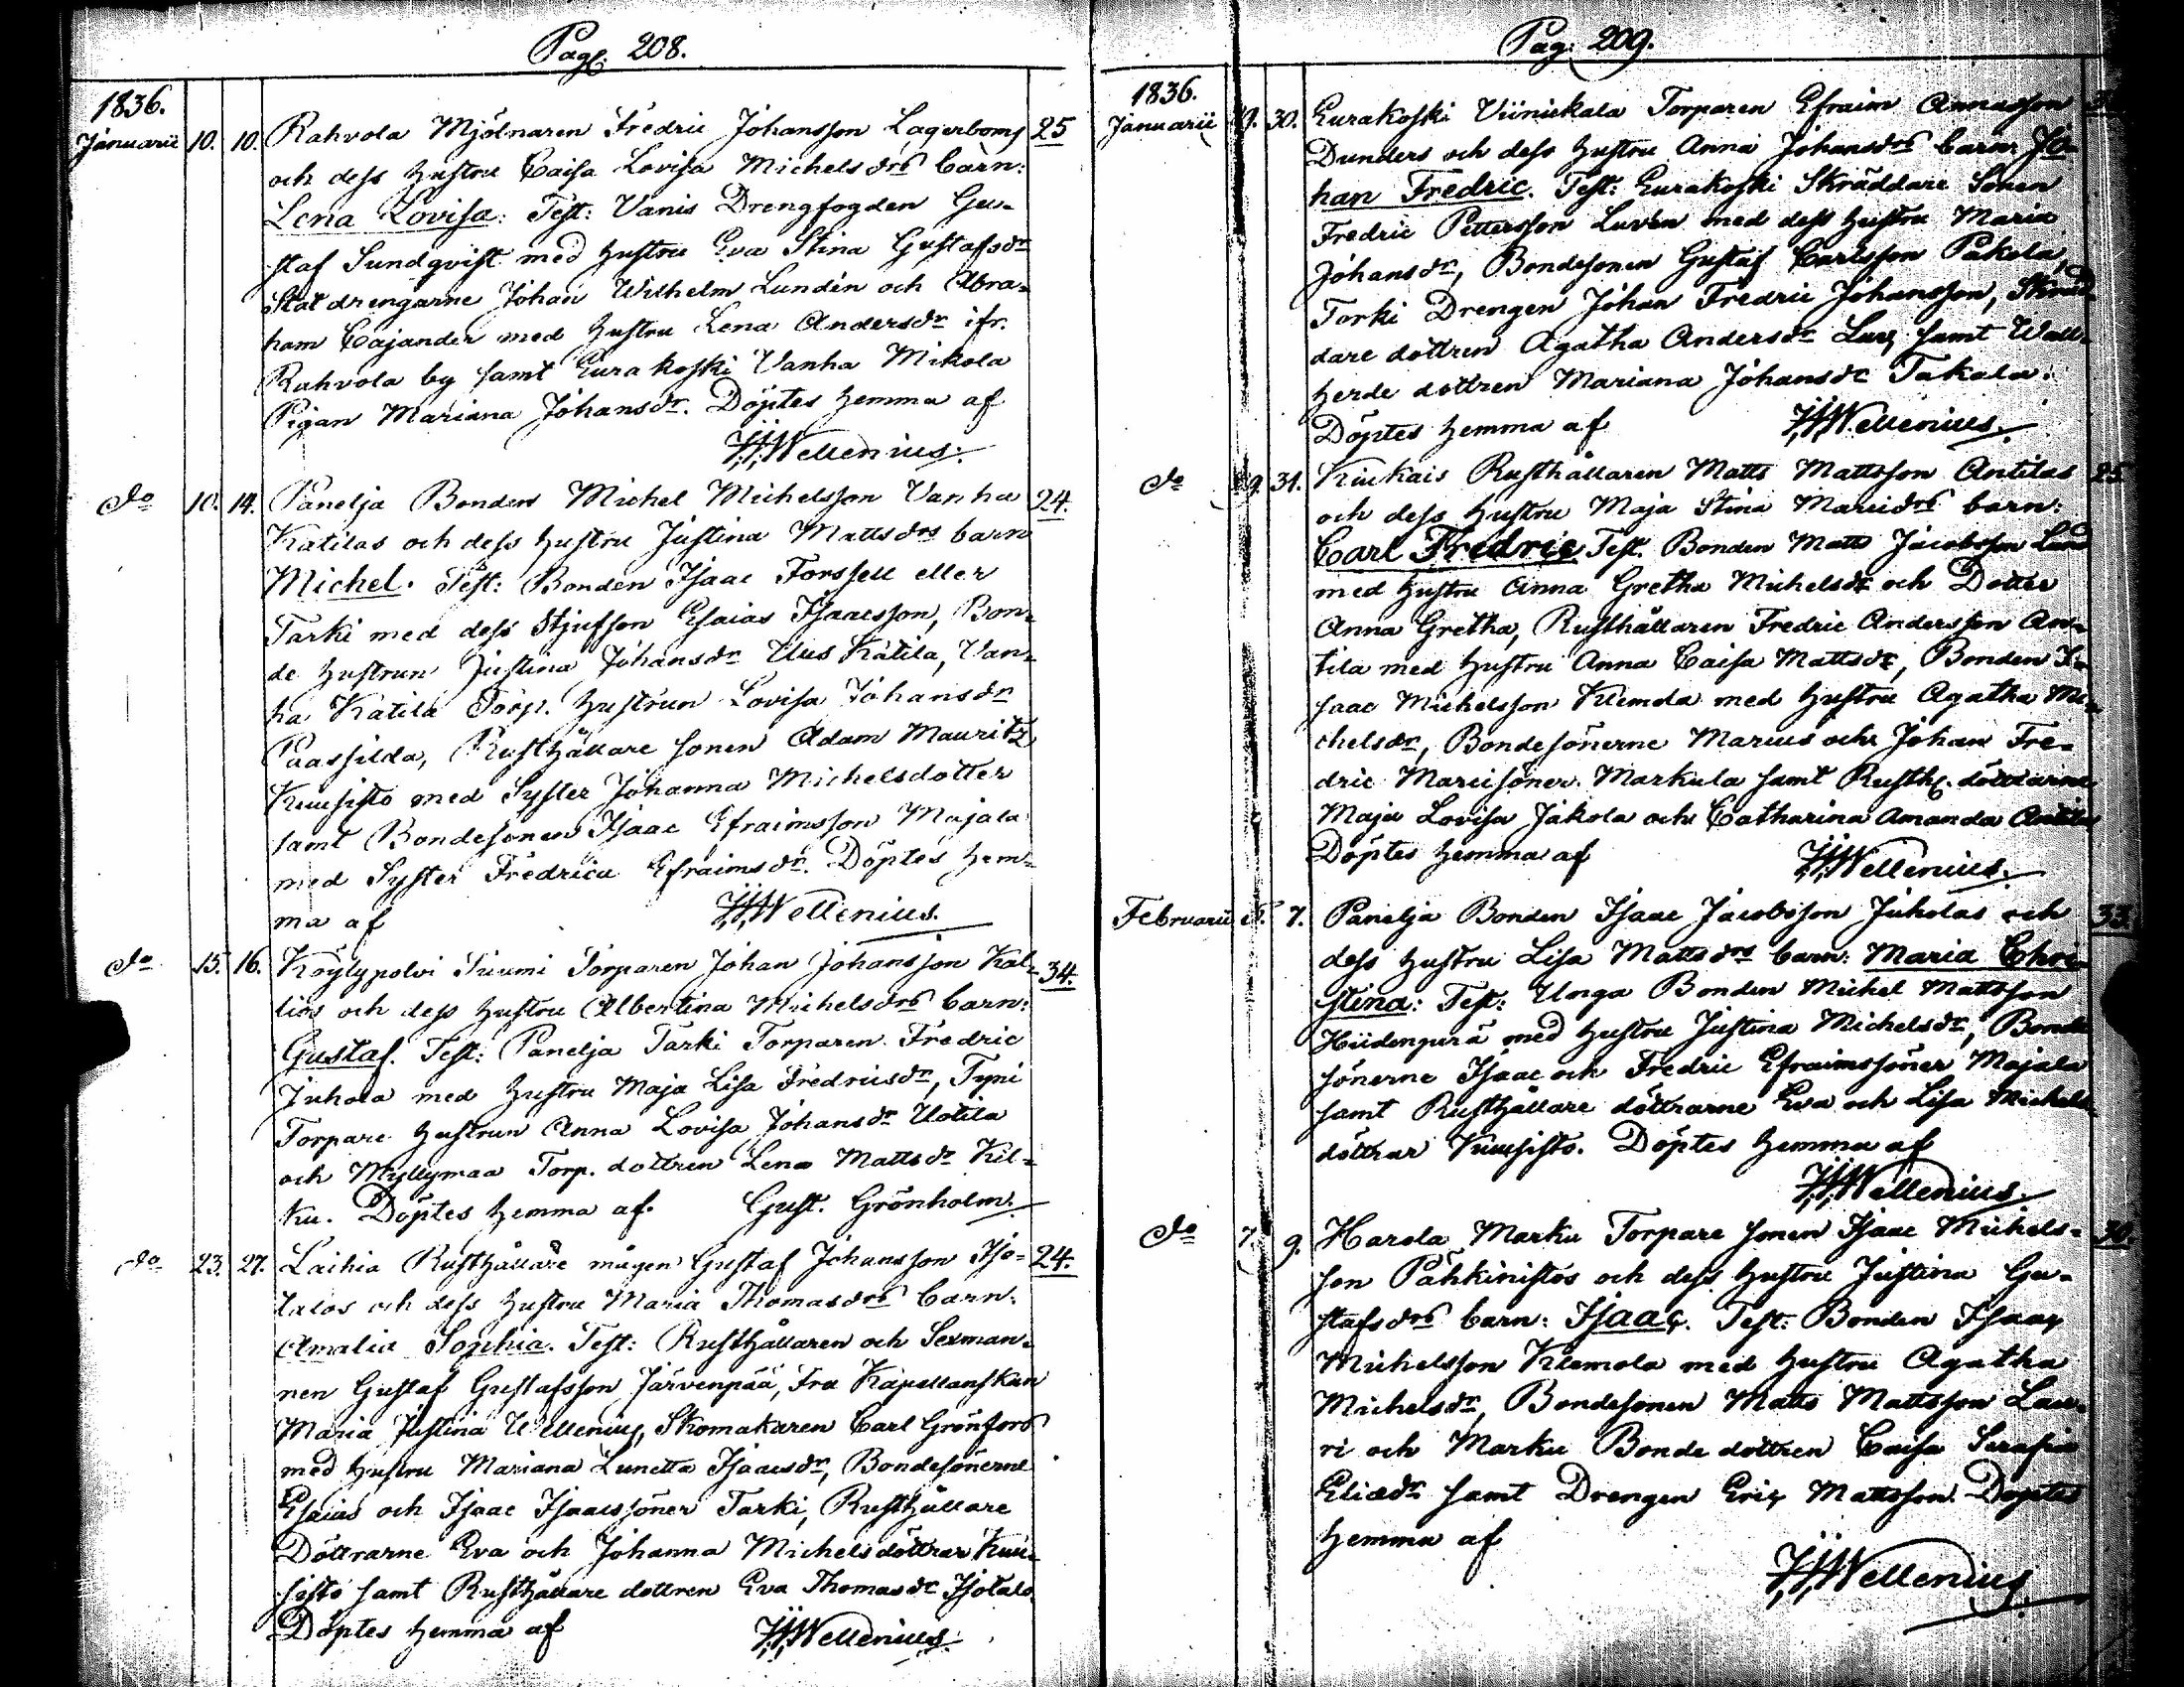 Pag. 208.
1836.
Januarii 10. 10. Rahvola Mjölnaren Fredric Johansson Lagerboms 25
och dess hustru Caisa Lovisa Michelsdrs barn:
Lena Lovisa: Test: Vanis Drengfogden Gu-
staf Sundqvist med hustru Eva Stina Gustafsdr
Statdrengarne Johan Wilhelm Lundén och Abra-
ham Cajander med hustru Lena Andersdr ifr.
Rahvola by samt Eurakoski Vanha Mikola
Pigan Mariana Johansdr. Döptes hemma af
Wellenius.
do 10. 14. Panelja Bonden Michel Michelsson Vanha 24.
Katilas och dess hustru Justina Mattsdrs barn
Michel. Test: Bonden Isaac Forssell eller
Tarki med dess Stjufson Esaias Isaacsson, Bon-
de hustrun Justina Johansdr Uus Katila, Van-
ha Katila Torp. hustrun Lovisa Johansdr
Paassilda, Rusthållare sonen Adam Mauritz
Kuusisto med Syster Johanna Michelsdotter
samt Bondesonen Isaac Efraimsson Majala
med Syster Fredrica Efraimsdr. Döptes hem-
ma af Wellenius.
do 15. 16. Köylypolvi Tuumi Torparen Johan Johansson Kal- 34.
lios och dess hustru Albertina Michelsdrs barn:
Gustaf. Test: Panelja Tarki Torparen Fredric
Juhola med hustru Maja Lisa Fredricsdr, Tyni
Torpare hustrun Anna Lovisa Johansdr Uotila
och Myllymaa Torp. dottren Lena Mattsdr Kil-
ku. Döptes hemma af. Gust. Grönholm.
do 23. 27. Laihia Rusthållare mågen Gustaf Johansson Iso- 24.
talos och dess hustru Maria Thomasdrs barn:
Amalia Sophia. Test: Rusthållaren och Sexman-
nen Gustaf Gustafsson Järvenpää, Fru Kapellanskan
Maria Justina Wellenius, Skomakaren Carl Grönfors
med hustru Mariana Lunetta Isaacsdr, Bondesönerne
Esaias och Isaac Isaacssöner Tarki, Rusthållare
Döttrarne Eva och Johanna Michelsdöttrar Kuu-
sisto samt Rusthållare dottren Eva Thomasdr Isotalo
Döptes hemma af Wellenius.
Pag. 209.
1836.
Januarii 30. Eurakoski Viinickala Torparen Efraim Annasson
Dunders och dess hustru Anna Johansdrs barn Jo-
han Fredric. Test: Eurakoski Skräddare Sonen
Fredric Pettersson Luvén med dess hustru Maria
Johansdr, Bondesonen Gustaf Carlsson Pakola,
Torki Drengen Johan Fredric Johansson, Skräd-
dare dottren Agatha Andersdr samt Wall-
herde dottren Mariana Johansdr Takala.
Döptes hemma af Wellenius.
do 31. Kiukais Rusthållaren Matts Mattsson Antilas 25.
och dess hustru Maja Stina Marcidrs barn:
Carl Fredric. Test. Bonden Matts Jacobsson
med hustru Anna Gretha Michelsdr och Dotter
Anna Gretha, Rusthållaren Fredric Andersson An-
tila med hustru Anna Caisa Mattsdr, Bonden I-
saac Michelsson Klemola med hustru Agatha Mi-
chelsdr, Bondesönerne Marcus och Johan Fre-
dric Marcisöner Markula samt Rusth. döttrarne
Maja Lovisa Jakola och Catharina Amanda Antila
Döptes hemma af Wellenius.
Februarii 7. Panelja Bonden Isaac Jacobsson Juholas och 33.
dess hustru Lisa Mattsdrs barn: Maria Chri-
stina: Test: Unga Bonden Michel Mattsson
Hiidenperä med hustru Justina Michelsdr, Bonde
sönerne Isaac och Fredric Efraimssöner Majala
samt Rusthållare döttrarne Eva och Lisa Michels
döttrar Kuusisto. Döptes hemma af
Wellenius.
do 7. 9. Harola Marku Torpare sonen Isaac Michels- 30.
son Pähkinistös och dess hustru Justina Gu-
stafsdrs barn: Isaac. Test: Bonden Isaac
Michelsson Klemola med hustru Agatha
Michelsdr, Bondesonen Matts Mattsson Lau-
ri och Marku Bonde dottren Caisa Serafia
Eliædr samt Drengen Eric Mattsson. Döptes
hemma af
Wellenius.